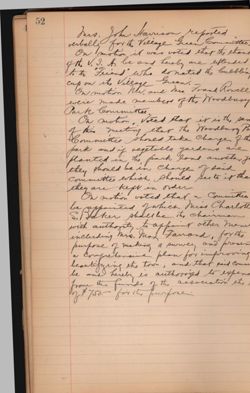 52
Mrs. John Harrison reported
verbally for the Village Green Committee
On motion it was voted that the thanks
of the V. I. A. be and hereby are extended
to the "Friend" who donated the bubbling
cup on the Village Green.
On motion Mr. and Mrs. Frank Rowell
were made members of the Woodbury
Park Committee.
On motion Voted that it is the
of this meeting that the Woodbury
Committee should take charge of the
park and if vegetable gardens are
planted in the park
they should be in charge of said
Committee which should see to it that
they are kept in order
On motion voted that a Committee
be appointed of which Miss Charlotte
E. Baker shall be the chairman
with authority to appoint other
including Mrs. Farrand, for the
purpose of making a survey, and
a comprehensive plan for improving
beautifying the town, and that said
be and hereby is authorized to expend
from the funds of the association the
of $75.00 for the purpose.